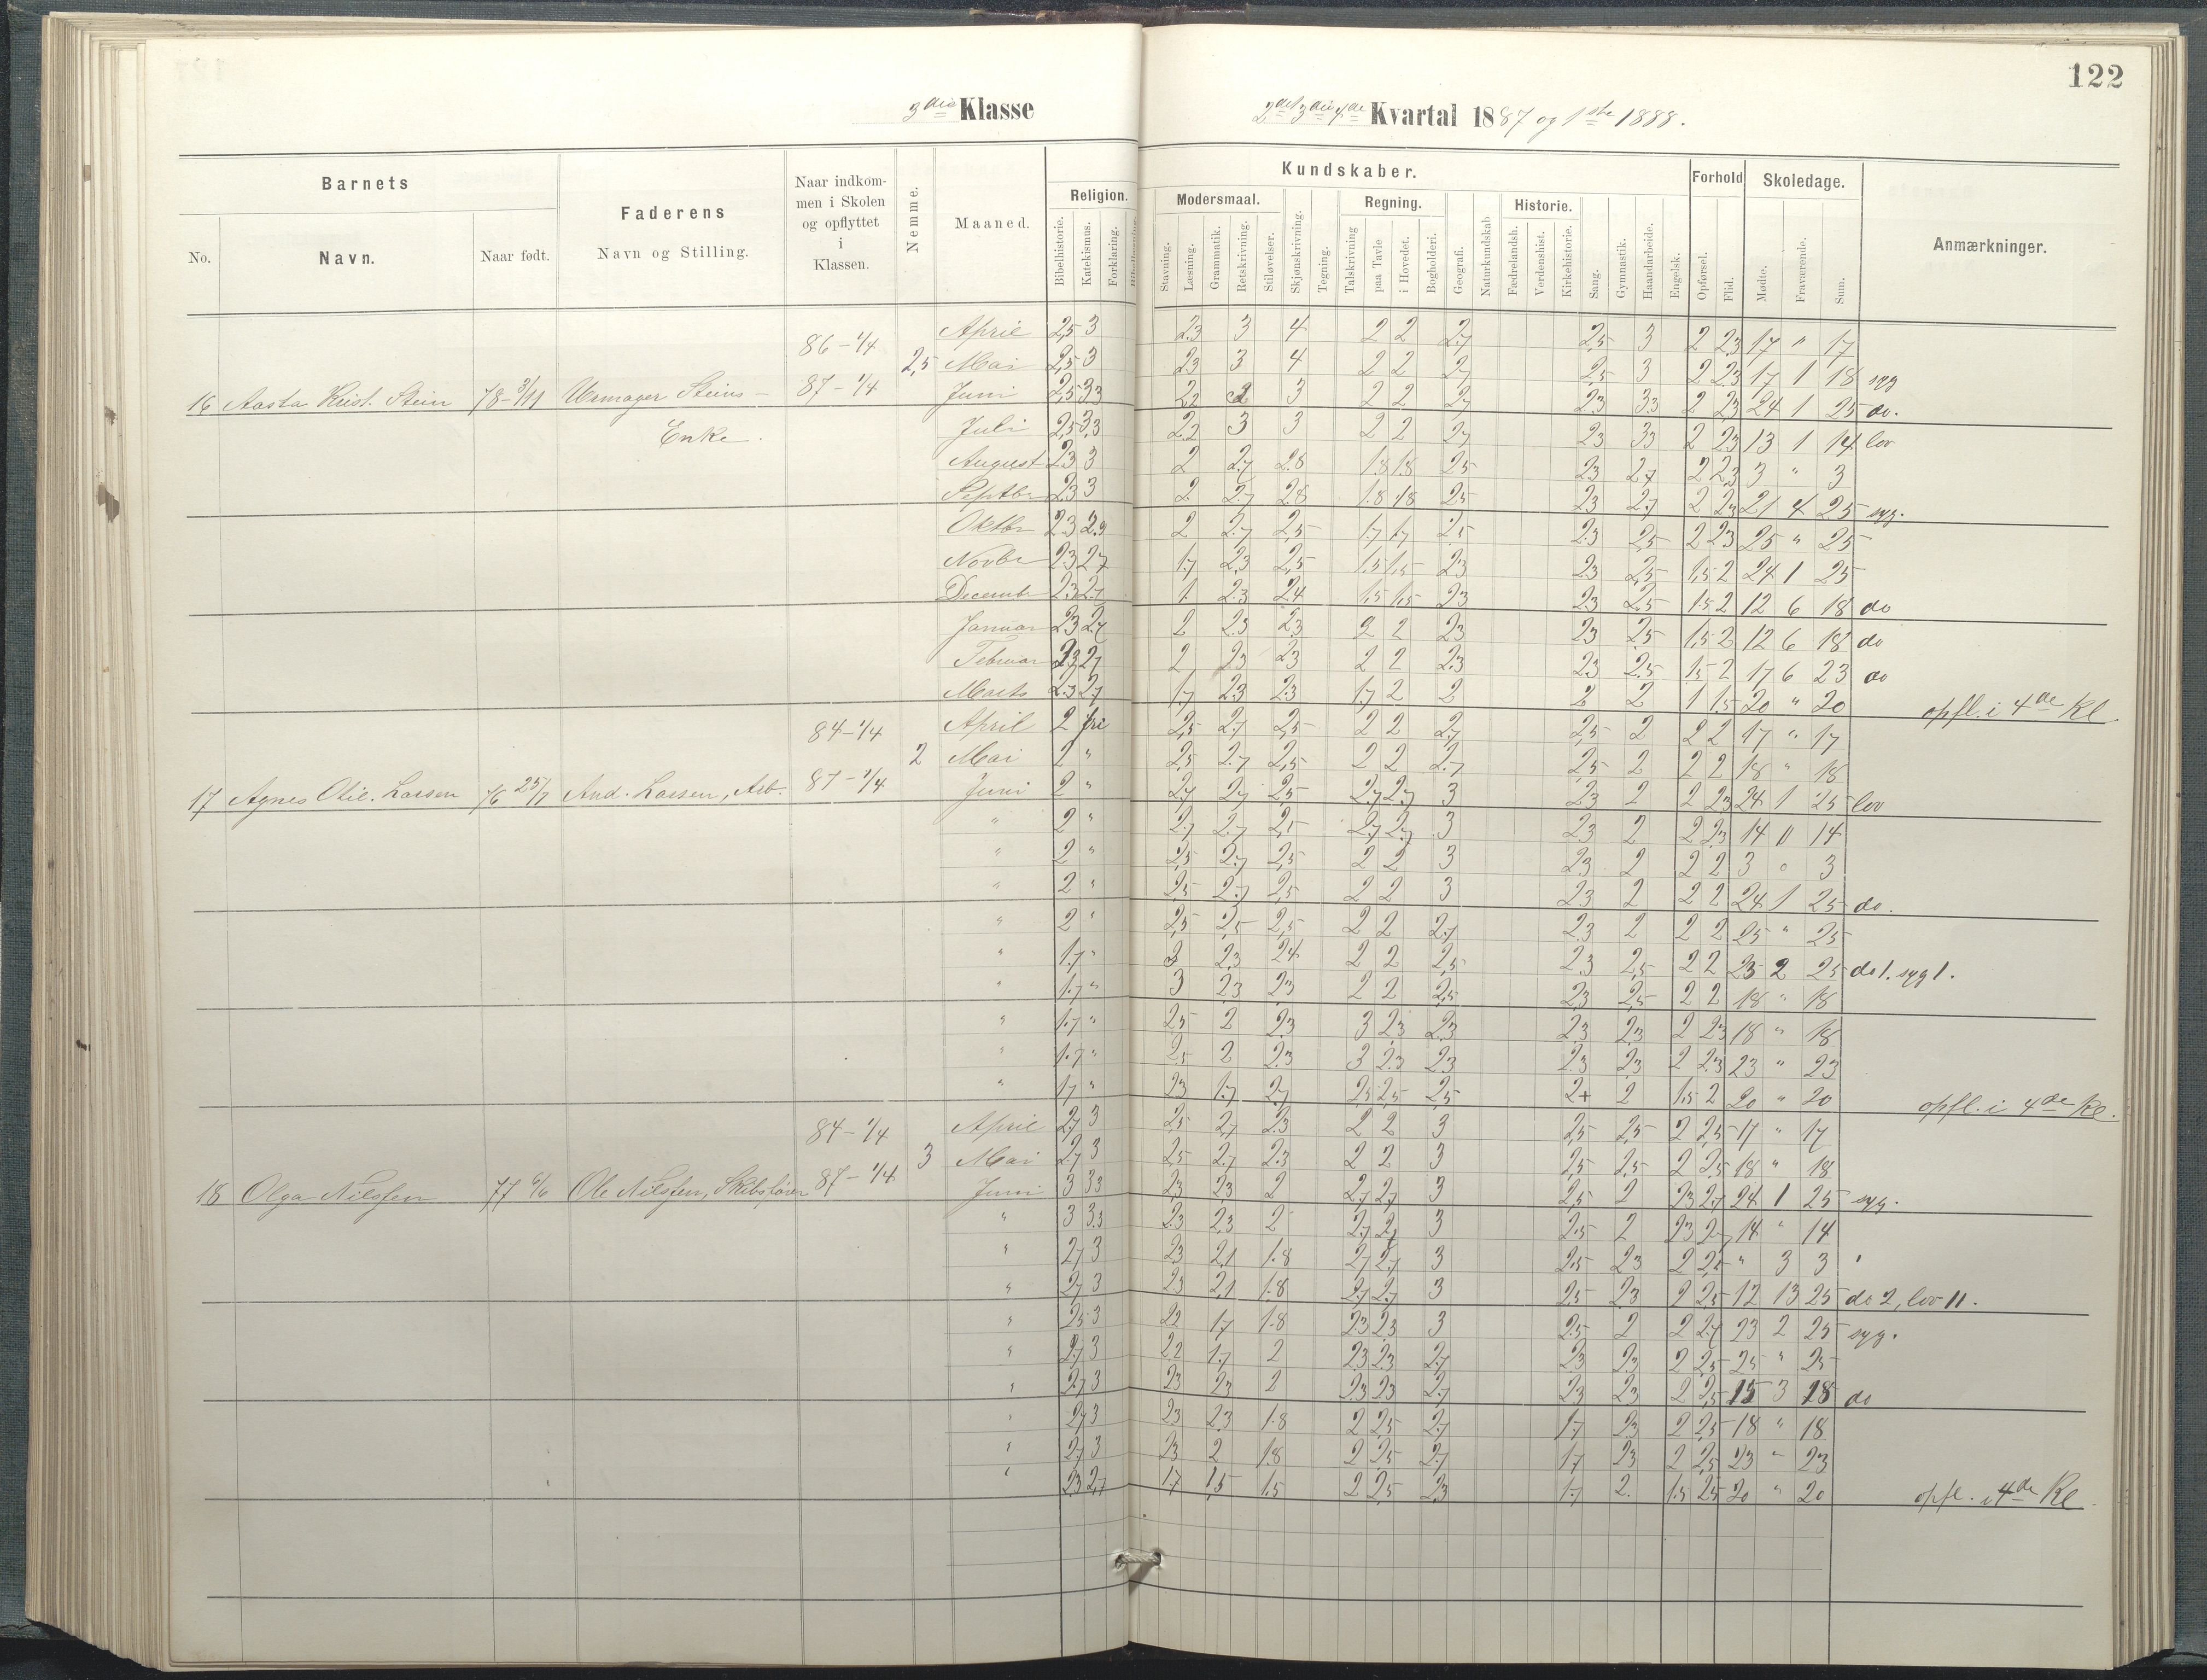 122
3die Klasse 2det 3die 4de Kvartal 1887 og 1ste 1888.
Barnets Faderens Naar indkommen i Skolen og opflyttet i Klassen. Nemme. Maaned. Kundskaber. Forhold Skoledage. Anmærkninger.
No. Navn. Naar født. Navn og Stilling. Religion. Modersmaal. Regning. Historie.
Bibelhistorie. Katekismus. Forklaring. Stavning. Læsning. Grammatik. Retskrivning. Stiløvelser. Skjønskrivning. Tegning. Talskrivning paa Tavle i Hovedet. Bogholderi. Geografi. Naturkundskab Fædrelandsh. Verdenshist. Kirkehistorie. Sang. Gymnastik. Haandarbeide. Engelsk. Opførsel. Flid. Mødte. Fraværende. Sum.
86-1/4 April 2,5 3 2.3 3 4 2 2 2.7 2,5 3 2 2.3 17 " 17
2,5 Mai 2,5 3 2.3 3 4 2 2 2.7 2,5 3 2 2.3 17 1 18 syg
16 Aasta Krist. Stein 78-3/11 Urmager Steins 87-1/4 Juni 2,5 3.3 2.2 2 3 2 2 2.7 2.3 3.3 2 2.3 24 1 25 do.
Enke. Juli 2,5 3.3 2.2 3 3 2 2 2.7 2.3 3.3 2 2.3 13 1 14 lov
August 2.3 3 2 2.7 2.8 1.8 1.8 2.5 2.3 2.7 2 2.3 3 " 3
Septbr 2.3 3 2 2.7 2.8 1.8 1.8 2.5 2.3 2.7 2 2.3 21 4 25 syg.
Oktbr 2.3 2.9 2 2.7 2,5 1.7 1.7 2.5 2.3 2,5 2 2.3 25 " 25
Novbr 2.3 2.7 1.7 2.3 2,5 1.5 1.5 2.3 2.3 2,5 1,5 2 24 1 25
Decemb. 2.3 2.7 1 2.3 2.4 1,5 1,5 2.3 2.3 2.5 1.5 2 12 6 18 do
Januar 2.3 2.7 2 2.3 2.3 2 2 2.3 2.3 2.5 1,5 2 12 6 18 do
Februar 2.3 2.7 2 2.3 2.3 2 2 2.3 2.3 2.5 1.5 2 17 6 23 do
Marts 2.3 2.7 1.7 2.3 2.3 1.7 2 2 2 2 1 1.5 20 " 20 opfl. i 4de Kl.
84-1/4 April 2 fri 2,5 2.7 2,5 2 2 2.7 2,5 2 2 2 17 " 17
2 Mai 2 " 2.5 2.7 2,5 2 2 2.7 2,5 2 2 2 18 " 18
17 Agnes Otil. Larsen 76 25/7 And. Larsen, Arb. 87-1/4 Juni 2 " 2.7 2.7 2.5 2.7 2.7 3 2.3 2 2 2.3 24 1 25 lov
" 2 " 2.7 2.7 2,5 2.7 2.7 3 2.3 2 2 2.3 14 0 14
" 2 " 2,5 2.7 2,5 2 2 3 2.3 2 2 2 3 " 3
" 2 " 2,5 2.7 2,5 2 2 3 2.3 2 2 2 24 1 25 do.
" 2 " 2,5 2,5 2,5 2 2 2.7 2.3 2 2 2 25 " 25
" 1.7 " 3 2.3 2.4 2 2 2,5 2.3 2,5 2 2 23 2 25 do 1. syg 1.
" 1.7 " 3 2.3 2.3 2 2 2,5 2.3 2,5 2 2 18 " 18
" 1.7 " 2.5 2 2.3 3 2.3 2.3 2.3 2.3 2 2.3 18 " 18
" 1.7 " 2.5 2 2.3 3 2.3 2.3 2.3 2.3 2 2.3 23 " 23
" 1.7 " 2.3 1.7 2.7 2.5 2,5 2,5 2+ 2 1.5 2 20 " 20 opfl. i 4de Kl.
84-1/4 April 2.7 3 2.5 2.7 2.3 2 2 3 2,5 2,5 2 2,5 17 " 17
3 Mai 2.7 3 2.5 2.7 2.3 2 2 3 2,5 2,5 2 2,5 18 " 18
18 Olga Nilsfen 77 6/6 Ole Nilsfen, Skibsfører 87-1/4 Juni 3 3.3 2.3 2.3 2 2.7 2.7 3 2,5 2 2.3 2.7 24 1 25 syg.
" 3 3.3 2.3 2.3 2 2.7 2.7 3 2.5 2 2.3 2.7 14 " 14
" 2.7 3 2.3 2.1 1.8 2.7 2.7 3 2.5 2.3 2 2,5 " 3 3 "
" 2.7 3 2.3 2.1 1.8 2.7 2.7 3 2.5 2.3 2 2,5 12 13 25 do 2, lov 11.
" 2.5 3 2.2 1.7 1.8 2.3 2.3 3 2.5 2 2 2.7 23 2 25 syg.
" 2.7 3 2.2 1.7 2 2.3 2.3 2.7 2.3 2.3 2 2,5 25 " 25
" 2.7 3 2.3 2.3 2 2.3 2.3 2.7 2.3 2.3 2 2,5 15 3 18 do
" 2.7 3 2.3 2.3 1.8 2 2.5 2.7 1.7 2.3 2 2,5 18 " 18
" 2.7 3 2.3 2 1.8 2 2.5 2.7 1.7 2.3 2 2,5 23 " 23
" 2.3 2.7 1.7 1,5 1.5 2 2,5 2.3 1.7 2. 1.5 2.5 20 " 20 opfl. i 4de Kl